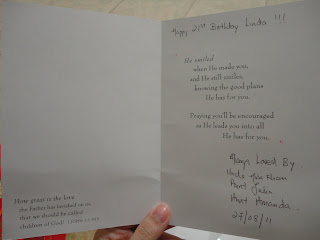 How great is the love
the Father has lavished on us,
that we should be called
children of God! 1 JOHN 3:1 NIV
Happy 21st Birthday Linda !!!
He smiled
when He made you,
and He still smiles,
knowing the good plans
He has for you.
Praying you'll be encouraged
as He leads you into all
He has for you.
Always Loved By..
Uncle
Aunt Julia
Aunt Amanda..
27/08/11